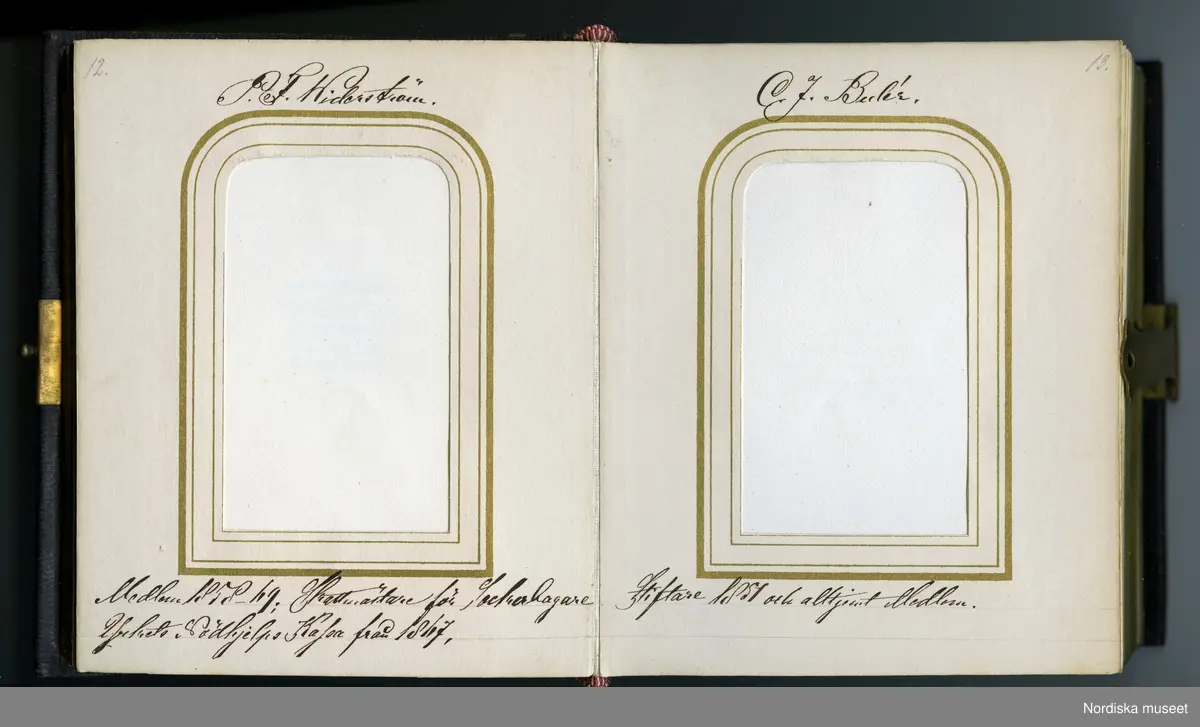 12.
P. F. Widerström.
Medlem 1858-69; Skattmästare för Sockerbagare
Yrkets Nödhjelps Kassa från 1867.
13.
C. J. Beler.
Stiftare 1851 och alltjemt Medlem.
Nordiska museet